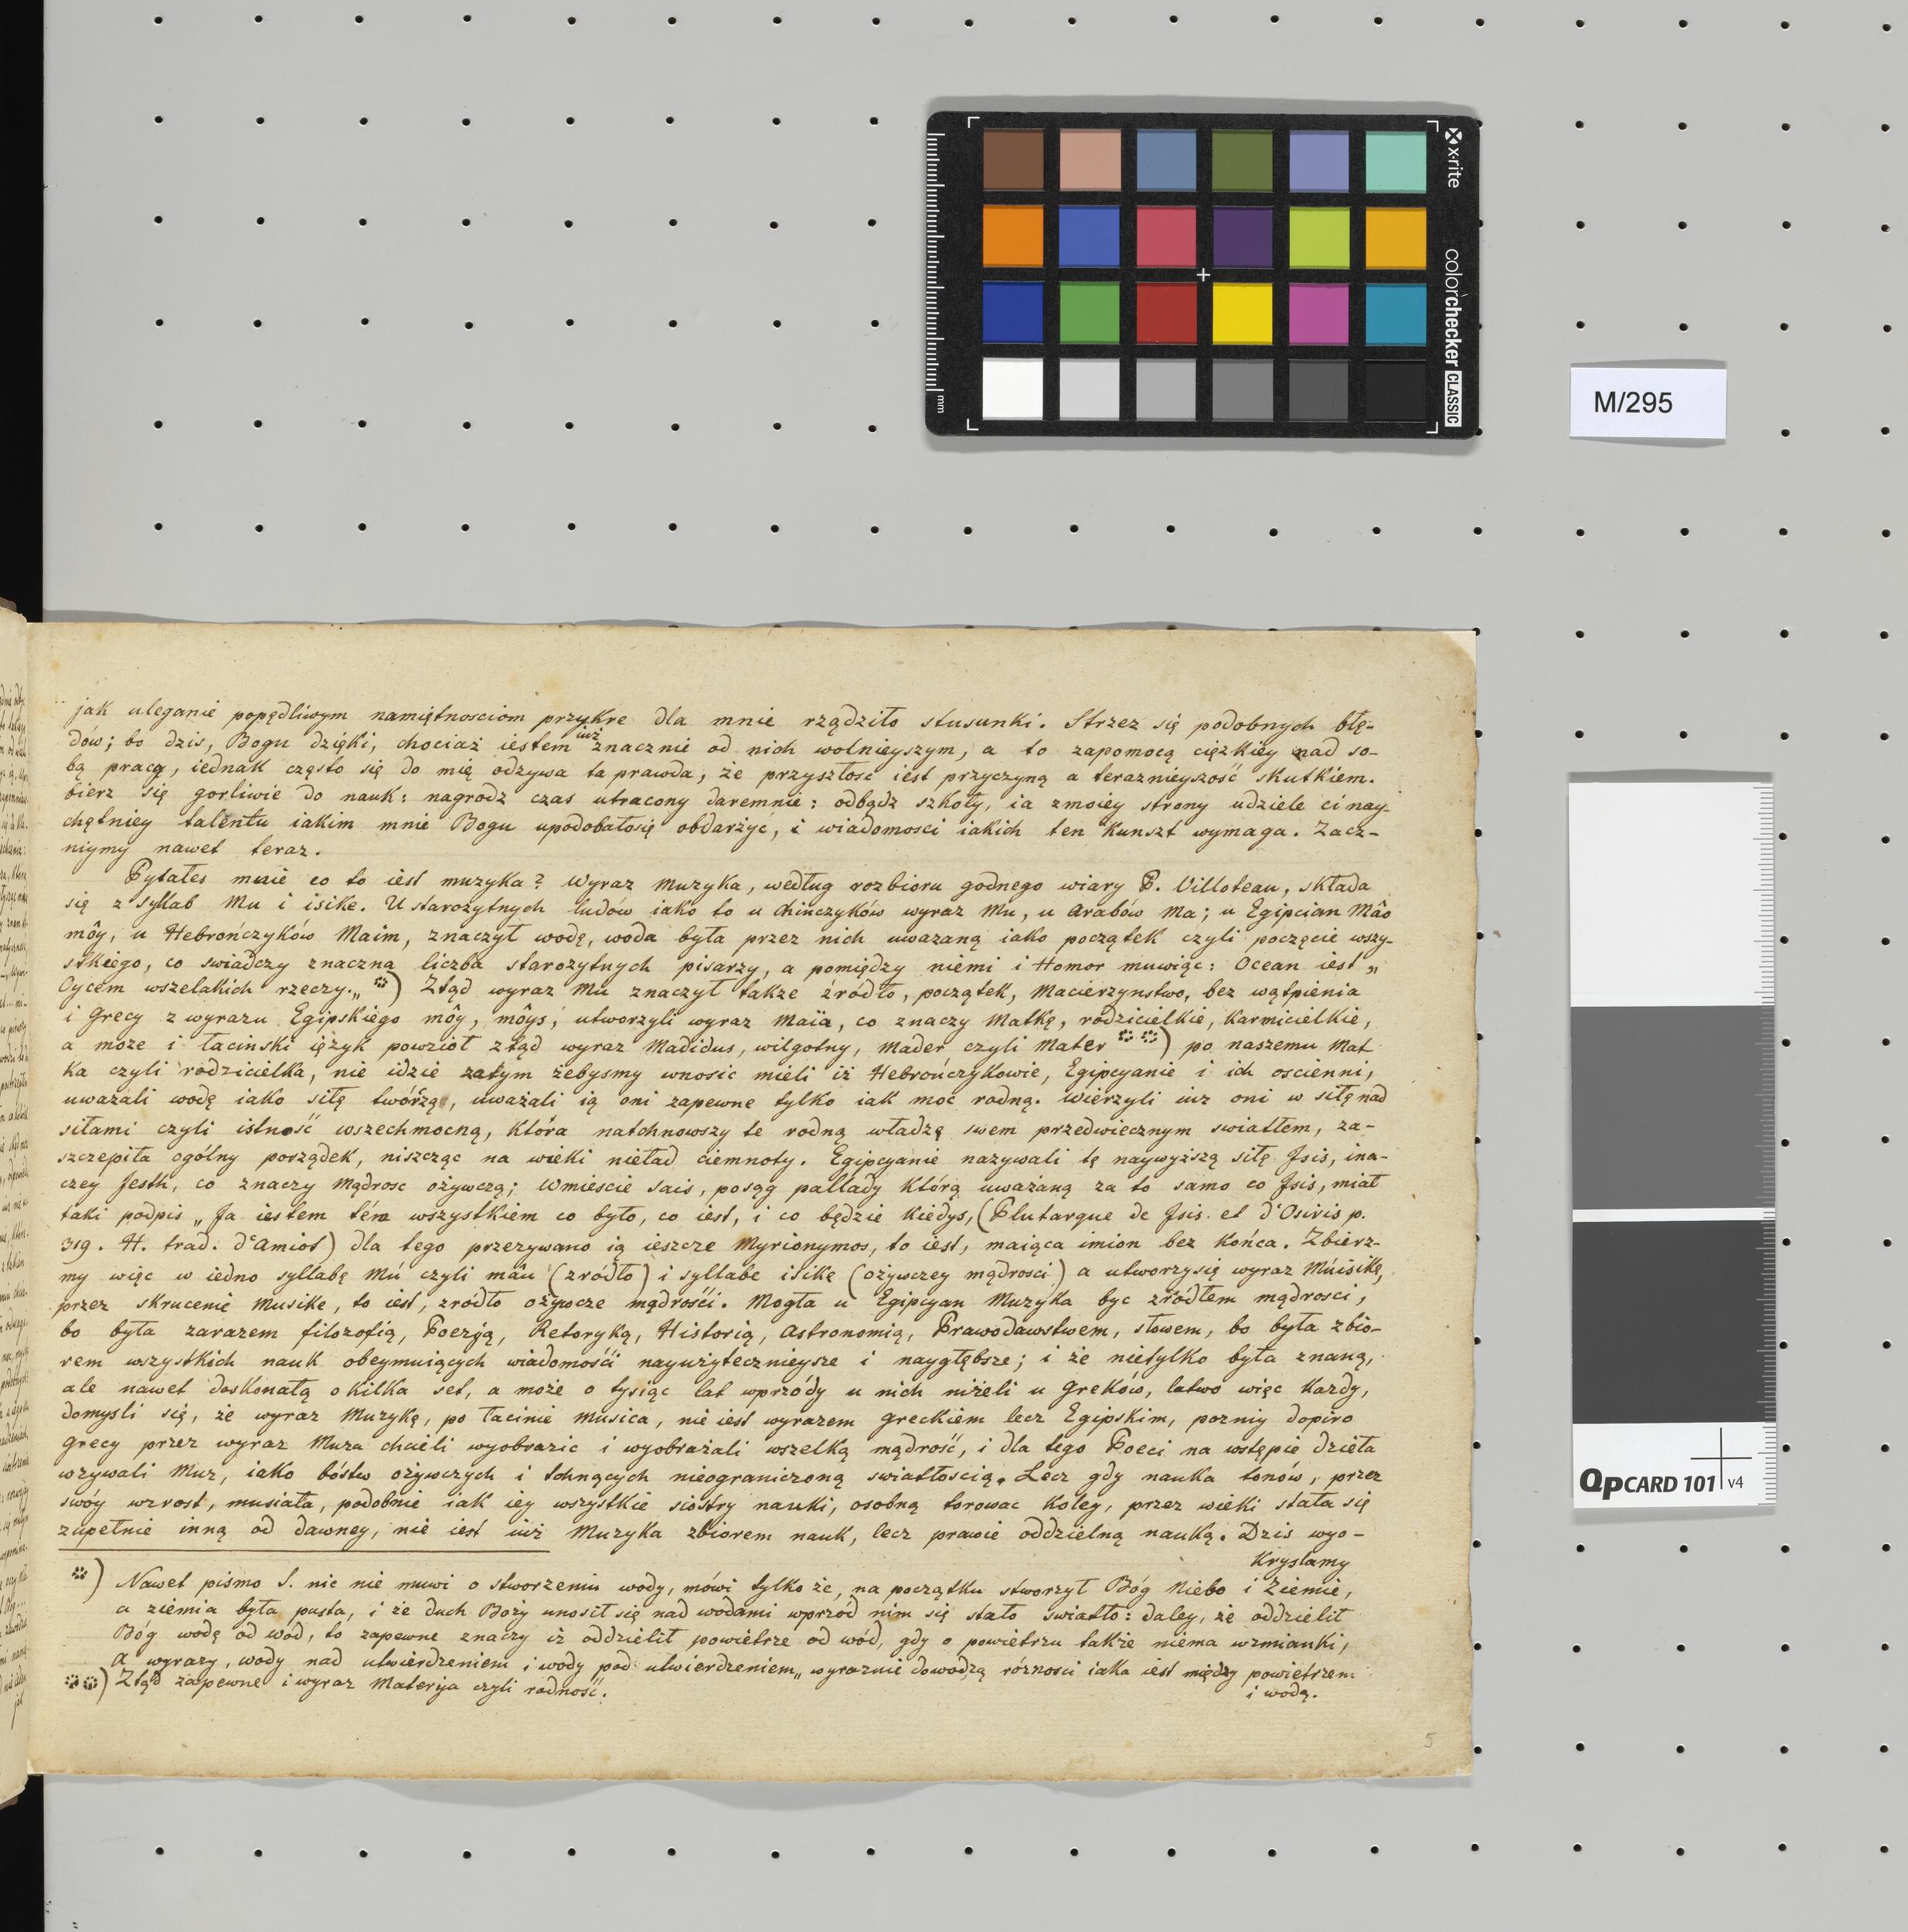 x·rite
colorchecker CLASSIC
mm
M/295
jak uleganie popędliwym namiętnosciom przykre dla mnie rządziło stusunki. Strzez się podobnych błę-
dów; bo dzis, Bogu dzięki, chociaż iestem iuż znacznie od nich wolnieyszym, a to zapomocą cięzkiey nad so-
bą pracą, iednak często się do mię odzywa ta prawda, że przyszłosc iest przyczyną a teraznieyszość skutkiem.
bierz się gorliwie do nauk: nagrodz czas utracony daremnie: odbądz szkoły, ia zmoiey strony udziele ci nay-
chętniey talentu iakim mnie Bogu upodobałosię obdarżyć, i wiadomosci iakich ten Kunszt wymaga. Zacz-
niymy nawet teraz.
Pytałes mnie co to iest muzyka? Wyraz Muzyka, według rozbioru godnego wiary P. Villoteau, składa
się z syllab Mu i isike. U starozytnych ludów iako to u chińczyków wyraz Mu, u Arabów Ma; u Egipcian Mâo
môy, u Hebrończyków Maim, znaczył wodę, woda była przez nich uwazaną iako początek czyli poczęcie wszy-
stkiego, co swiadczy znaczna liczba starozytnych pisarzy, a pomiędzy niemi i Homor muwiąc: Ocean iest „
Oycem wszelakich rzeczy.„ *) Ztąd wyraz Mu znaczył także źródło, początek, Macierzynstwo, bez wątpienia
i Grecy z wyrazu Egipskiego môy, môys, utworzyli wyraz Maïa, co znaczy Matkę, rodzicielkie, Karmicielkie,
a moze i łacinski ięzyk powziół ztąd wyraz Madidus, wilgotny, Mader czyli Mater **) po naszemu Mat
ka czyli rodzicielka, nie idzie zatym żebysmy wnosic mieli iż Hebrończykowie, Egipcyanie i ich oscienni,
uważali wodę iako siłę twórżą, uważali ią oni zapewne tylko iak moc rodną. Wierzyli iuz oni w siłę nad
siłami czyli istność wszechmocną, która natchnowszy te rodną władzę swem przedwiecznym swiatłem, za-
szczepiła ogolny porządek, niszcząc na wieki nieład ciemnoty. Egipcyanie nazywali tę naywyższą siłę Jsis, ina-
czey Jesth, co znaczy Mądrosc ożywczą; Wmiescie Sais, posąg pallady którą uważaną za to samo co Jsis, miał
taki podpis „Ja iestem tém wszystkiem co było, co iest, i co będzie kiedys, (Plutarque de Jsis et d'Osiris p.
319. H. trad. d'Amiot) dla tego przezywano ią ieszcze Myrionymos, to iest, maiąca imion bez końca. Zbierz-
my więc w iedno syllabę Mú czyli mâu (zródło) i syllabe isikę (ożywczey mądrosci) a utworzysię wyraz Múisikę,
przez skrucenie Musike, to iest, zródło ożywcze mądrośći. Mogła u Egipcyan Muzyka byc zródłem mądrosci,
bo była zarazem filozofią, Poezją, Retoryką, Historią, Astronomią, Prawodawstwem, słowem, bo była zbio-
rem wszystkich nauk obeymuiących wiadomośći nayużytecznieysze i naygłębsze; i że nietylko była znaną,
ale nawet doskonałą okilka set, a może o tysiąc lat wprzódy u nich niżeli u Greków, latwo więc każdy,
domysli się, że wyraz Muzykę, po łacinie musica, nie iest wyrazem greckiem lecz Egipskim, pozniy dopiro
Grecy przez wyraz Muza chcieli wyobrazic i wyobrażali wszelką mądrość, i dla tego Poeci na wstępie dzieła
wzywali Muz, iako bóstw ożywczych i tchnących nieograniczoną swiatłoscią. Lecz gdy nauka tonów, przez
swóy wzrost, musiała, podobnie iak iey wszystkie siostry nauki, osobną torowac koley, przez wieki stała się
zupełnie inną od dawney, nie iest iuż Muzyka zbiorem nauk, lecz prawie oddzielną nauką. Dzis wyo-
krystamy
*) Nawet pismo S. nic nie muwi o stworzeniu wody, mówi tylko że, na początku stworzył Bóg Niebo i Ziemie,
a ziemia była pusta, i że duch Boży unosił się nad wodami wprzód nim się stało swiatło: daley, że oddzielił
Bóg wodę od wód, to zapewne znaczy iż oddzielił powietrze od wód, gdy o powietrzu także niema wzmianki,
A wyrazy, wody nad utwierdzeniem i wody pod utwierdzeniem„ wyraznie dowodzą rózności iaka iest między powietrzem
i wodą.
**) Ztąd zapewne i wyraz Materija czyli rodność.
5
QPCARD 101 v4